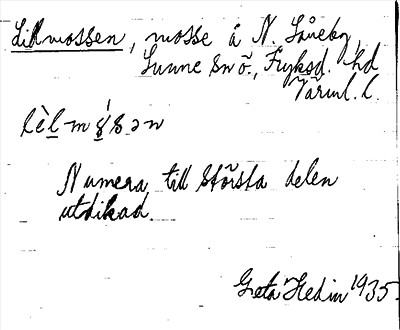 Lillmossen, mosse å N. Låneby,
Sunne snö., Fryksd. hd
Värml. l.
lèl-m
Numera till största delen
utdikad.
Greta Hedin 1935.